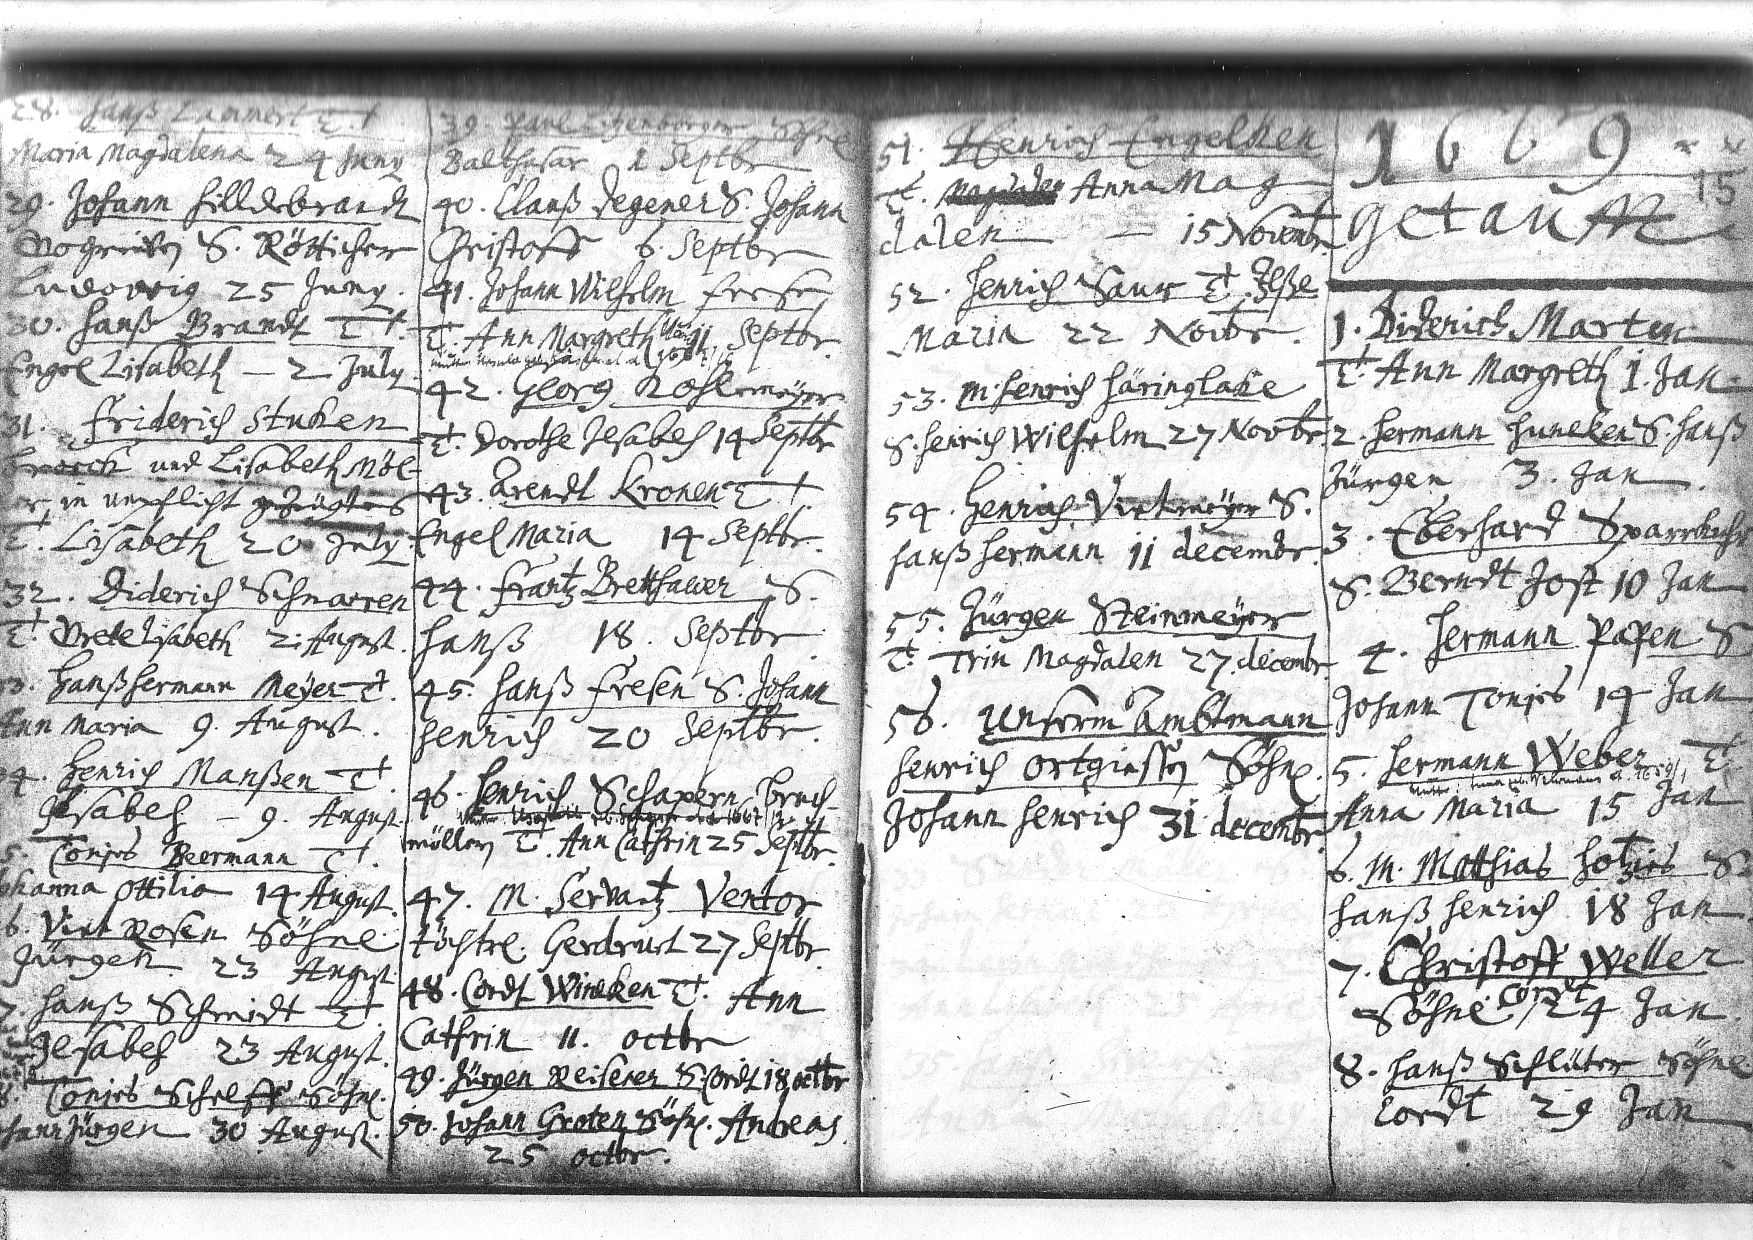 28. Hanß Lammert T.
Maria Magdalena 24 Juny
29. Johann Hilldebrandt
S. Rötticher
Ludowig 25 Juny.
30. Hanß Brandt T.
Engel Lisabeth – 2 July
31. Friderich Stuken
und Lisabeth Möl-
in unpflicht gezeugtes
T. Lisabeth 20 July.
32. Diderich Schnarren
T. Grete Lisabeth 2. August.
Hanß Hermann Meyer T.
Ann Maria 9. August.
Henrich Manßen T.
Ilsabeh – 9. August.
Tonjes Beermann T.
Johanna Ottilia 14 August.
Rosen Söhne
Jürgen 23 August.
Hanß Schmidt T.
Ilsabeh 23 August.
Tonjes Söhne.
Hann Jürgen 30 August.
39. Paul Söhne
Balthasar 1 Septbr
40. Clauß Degener S. Johann
Christoff 6. Septbr
41. Johann Wilhelm Fresen
T. Ann Margreth 11 Septbr.
42. Georg Kohlmeyer
T. Dorothe Ilsabeh 14 Septbr
43. Arendt Kronen T.
Engel Maria 14 Septbr.
44. Frantz Bretthawer S.
Hanß 18. Septbr.
45. Hanß Fresen S. Johann
Henrich 20 Septbr.
46. Henrich Schapern Bruch-
möllen T. Ann Cathrin 25 Septbr.
47. M. Servatz Ventor
töchtre. Gerdrut 27 Septbr.
48. Cordt Wineken T. Ann
Cathrin 11. octbr
49. Jürgen Reisener S. Cordt 18 octbr
50. Johann Groten Söhn. Andreas
25 octbr.
51. Henrich Engelken
T. Anna Mag
dalen – 15 Novembr.
52. Henrich Saur T. Ilße
Maria 22 Novbr.
53. M. Henrich Häringlake
S. Henrich Wilhelm 27 Novbr
54. Henrich Vietmeyer S.
Hanß Hermann 11 decembr.
55. Jürgen Steinmeyer
T. Trin Magdalen 27. decembr
56. Unserm Ambtmann
Henrich Ortgießen Söhne.
Johann Henrich 31 decembr.
1669
15
Getaufft
1. Diderich Marten
T. Ann Margreth 1. Jan.
2. Hermann Huneken S. Hanß
Jürgen 3. Jan.
3. Eberhard
S. Berndt Jost 10 Jan
4. Hermann Papen S
Johann Tonjes 14 Jan
5. Hermann Weber T.
Anna Maria 15 Jan
6. M. Matthias S.
Hanß Henrich 18 Jan
7. Christoff Weller
Söhne. Cordt 24 Jan.
8. Hanß Schlüter Söhne
Cordt 29 Jan